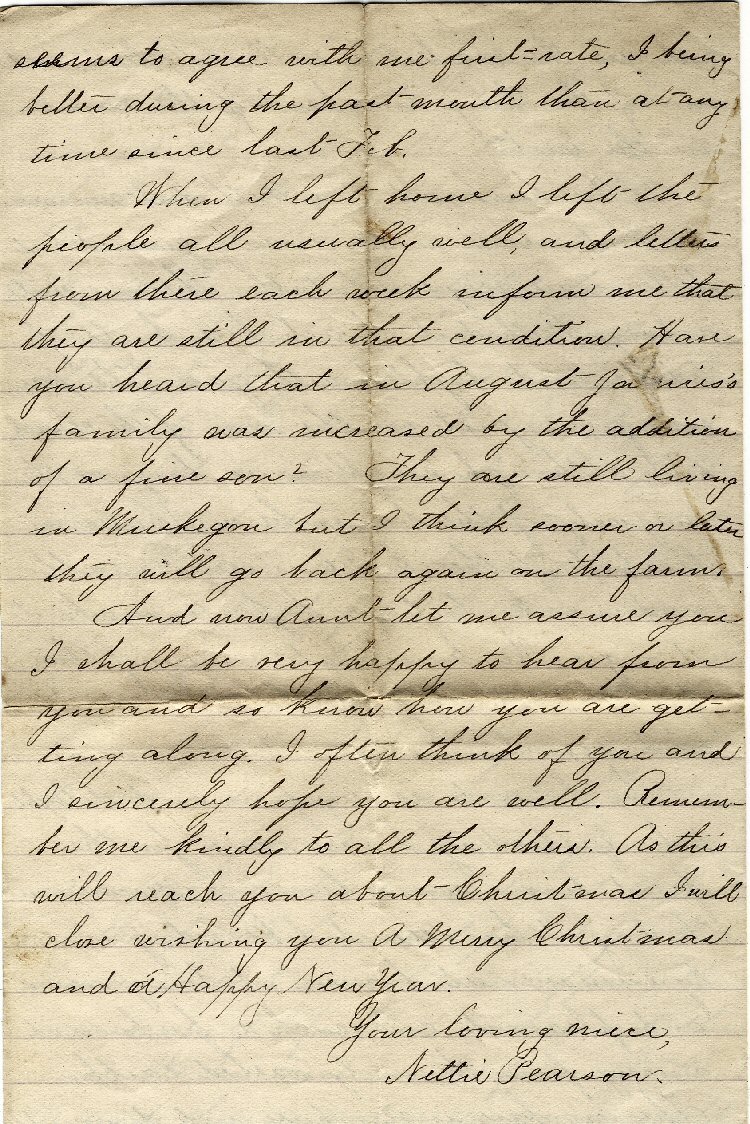 seems to agree with me first-rate, I being
better during the past month than at any
time since last Feb.
When I left home I left the
people all usually well, and letters
from there each week inform me that
they are still in that condition. Have
you heard that in August
family was increased by the addition
of a fine son? They are still living
in Muskegon but I think sooner or later
they will go back again on the farm.
And now Aunt let me assure you
I shall be very happy to hear from
you and so know how you are get-
ting along. I often think of you and
I sincerely hope you are well. Remem-
ber me kindly to all the others. As this
will reach you about Christmas I will
close wishing you A Merry Christmas
and a Happy New Year.
Your loving niece,
Nettie Pearson.